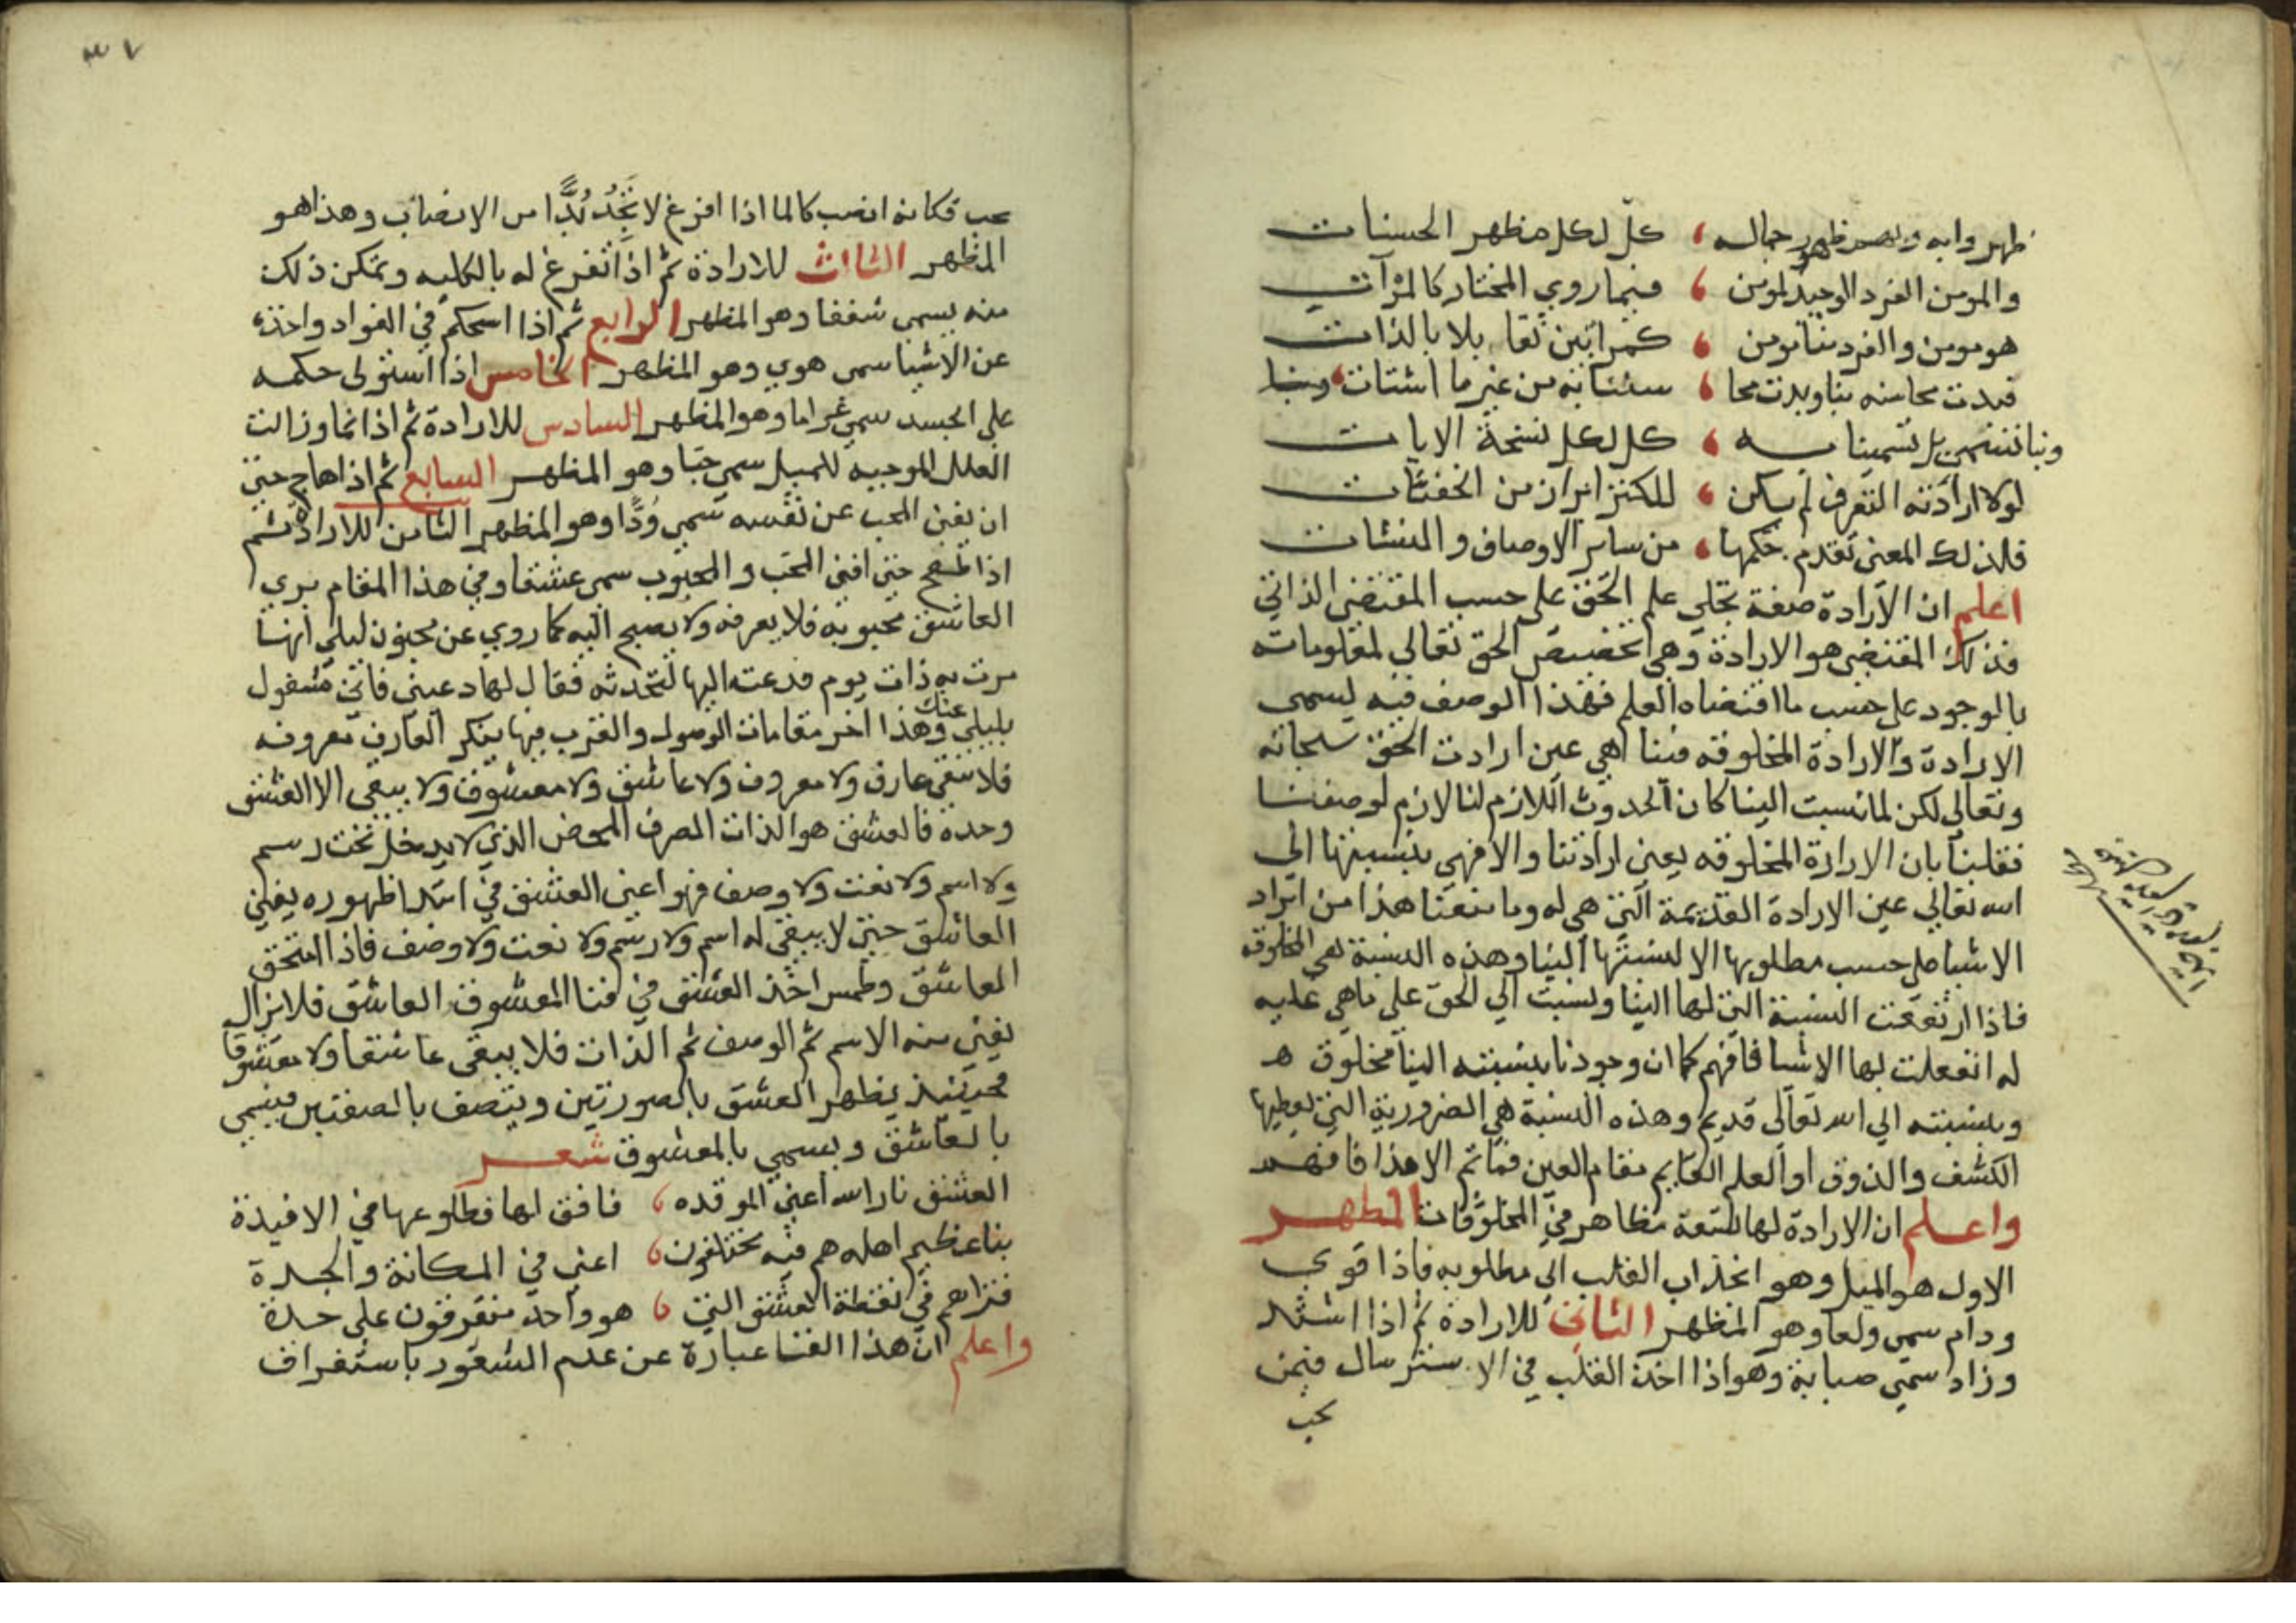 ظهروا به وبهم ظهور جماله ، كل لكل مظهر الحسنات
والمومن الفرد الوحيد لمومن ، فيما روي المختار كالمرآت
هو مومن والفرد منا مومن ، كمرآتين تقابلا بالذات
فبدت محاسنه بنا وبدت محا ، سننا به من غير ما اشتات
وبنا تسمى بل تسمينا به ، كل لكل نسخة الايات
لولا ارادته التعرف لم يكن ، للكنز ابراز من الخفيات
فلذلك المعنى تقدم حكمها ، من ساير الاوصاف والمنشات
اعلم ان الارادة صفة تجلي علم الحق على حسب المقتضى الذاتي
فذلك المقتضى هو الارادة وهي تخصيص الحق تعالى لمعلوماته
بالوجود على حسب ما اقتضاه العلم فهذا الوصف فيه يسمى
الارادة والارادة المخلوقه فينا هي عين ارادت الحق سبحانه
وتعالى لكن لما نسبت الينا كان الحدوث اللازم لنا لازم لوصفنا
فقلنا بان الارادة المخلوقه يعني ارادتنا والا فهي بنسبتها الى
الله تعالي عين الارادة القديمة التي هي له وما منعنا هذا من ابراد
الاشيا على حسب مطلوبها الا لنسبتها الينا وهذه النسبة هي المخلوقه
فاذا ارتفعت النسبة التي لها الينا ونسبت الي الحق على ماهي عليه
له انفعلت لها الاشيا فافهم كما ان وجودنا بنسبته الينا مخلوق ه
وبنسبته الي الله تعالى قديم وهذه النسبة هي الضرورية التي يعطيها
الكشف والذوق او العلم القايم مقام العين فما ثم الا هذا فافهم
واعلم ان الارادة لها تسعة مظاهر في المخلوقات المظهر
الاول هو الميل وهو انجذاب القلب الي مطلوبه فاذا قوي
ودام سمى ولعا وهو المظهر الثاني للارادة ثم اذا اشتد
وزاد سمي صبابة وهو اذا اخذ القلب في الاسترسال فيمن
يحب
٣٧
يحب فكانه انصب كالما اذا افرغ لا تجد بدا من الانصباب وهذا هو
المظهر الثالث للارادة ثم اذا تفرغ له بالكليه وتمكن ذلك
منه يسمى شغفا وهو المظهر الرابع ثم اذا استحكم في الفواد واخذه
عن الاشيا سمى هوي وهو المظهر الخامس اذا استولى حكمه
على الجسد سمي غراما وهو المظهر السادس للارادة ثم اذا نما وزالت
العلل الموجبه للميل سمى حبا وهو المظهر السابع ثم اذا هاج حتى
ان يفنى المحب عن نفسه سمي ودا وهو المظهر الثامن للارادة ثم
اذا طفح حتى افنى المحب والمحبوب سمى عشقا وفي هذا المقام يري
العاشق محبوبه فلا يعرفه ولا يصيح اليه كما روي عن مجنون ليلي انها
مرت به ذات يوم فدعته اليها لتحدثه فقال لها دعيني فاني مشغول
بليلي عنك وهذا اخر مقامات الوصول والقرب فيها ينكر العارف معروفه
فلا يبقى عارف ولا معروف ولا عاشق ولا معشوق ولا يبقى الا العشق
وحده فالعشق هو الذات الصرف المحض الذي لا يدخل تحت رسم
ولا اسم ولا نعت ولا وصف فهو اعنى العشق في ابتدا ظهوره يفني
العاشق حتى لا يبقى له اسم ولا رسم ولا نعت ولا وصف فاذا امتحق
العاشق وطمس اخذ العشق في فنا المعشوق العاشق فلا يزال
يفنى منه الاسم ثم الوصف ثم الذات فلا يبقى عاشقا ولا معشوقا
فحينئذ يظهر العشق بالصورتين ويتصف بالصفتين فيسمى
بالعاشق ويسمى بالمعشوق شعر
العشق نار الله اعني الموقده ، فافق لها فطلوعها في الافيدة
بنا عظيم اهله هم فيه مختلفون ، اعني في المكانة والجدة
فتراهم في نقطة العشق التي ، هو واحد متفرقون على حدة
واعلم ان هذا الفنا عبارة عن عدم الشعور باستغراف